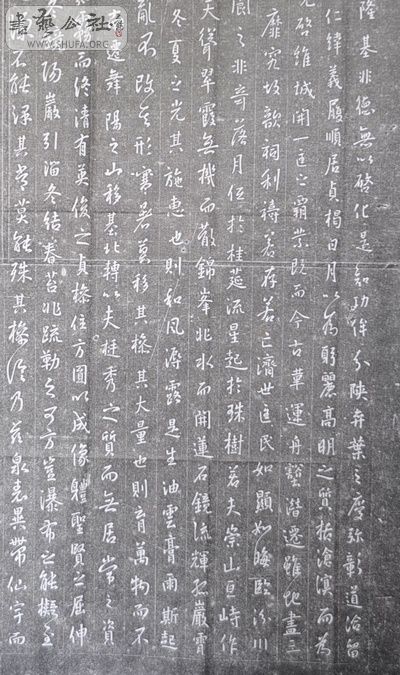 書藝公社
WWW.SHUFA.ORG
隆基非德無以啓化是知功侔分陝弈葉之慶弥彰道洽留
仁緯義履順居貞揭日月以為躬麗高明之質括滄溟而為
光啓維城開一匡之霸業既而今古革運舟壑潛遷雖地盡三
靡究故歆祠利禱若存若亡濟世匡民如顯如晦臨汾川
閬之非奇落月低於桂筵流星起於珠樹若夫崇山亘峙作
天聳翠霞無機而散錦峯非水而開蓮石鏡流輝孤巖宵
冬夏之光其施惠也則和風溽露是生油雲膏雨斯起
亂不改其形寒暑莫移其操其大量也則育萬物而不
遷舞陽之山移基北轉以夫挺秀之質而無居常之資
霧而終清有英俊之貞操住方圓以成像體聖賢之屈伸
陽巖引溜冬結春苔非疏勒之可方豈瀑布之能擬至
不能其常莫能殊其操信乃茲泉表異帶仙宇而